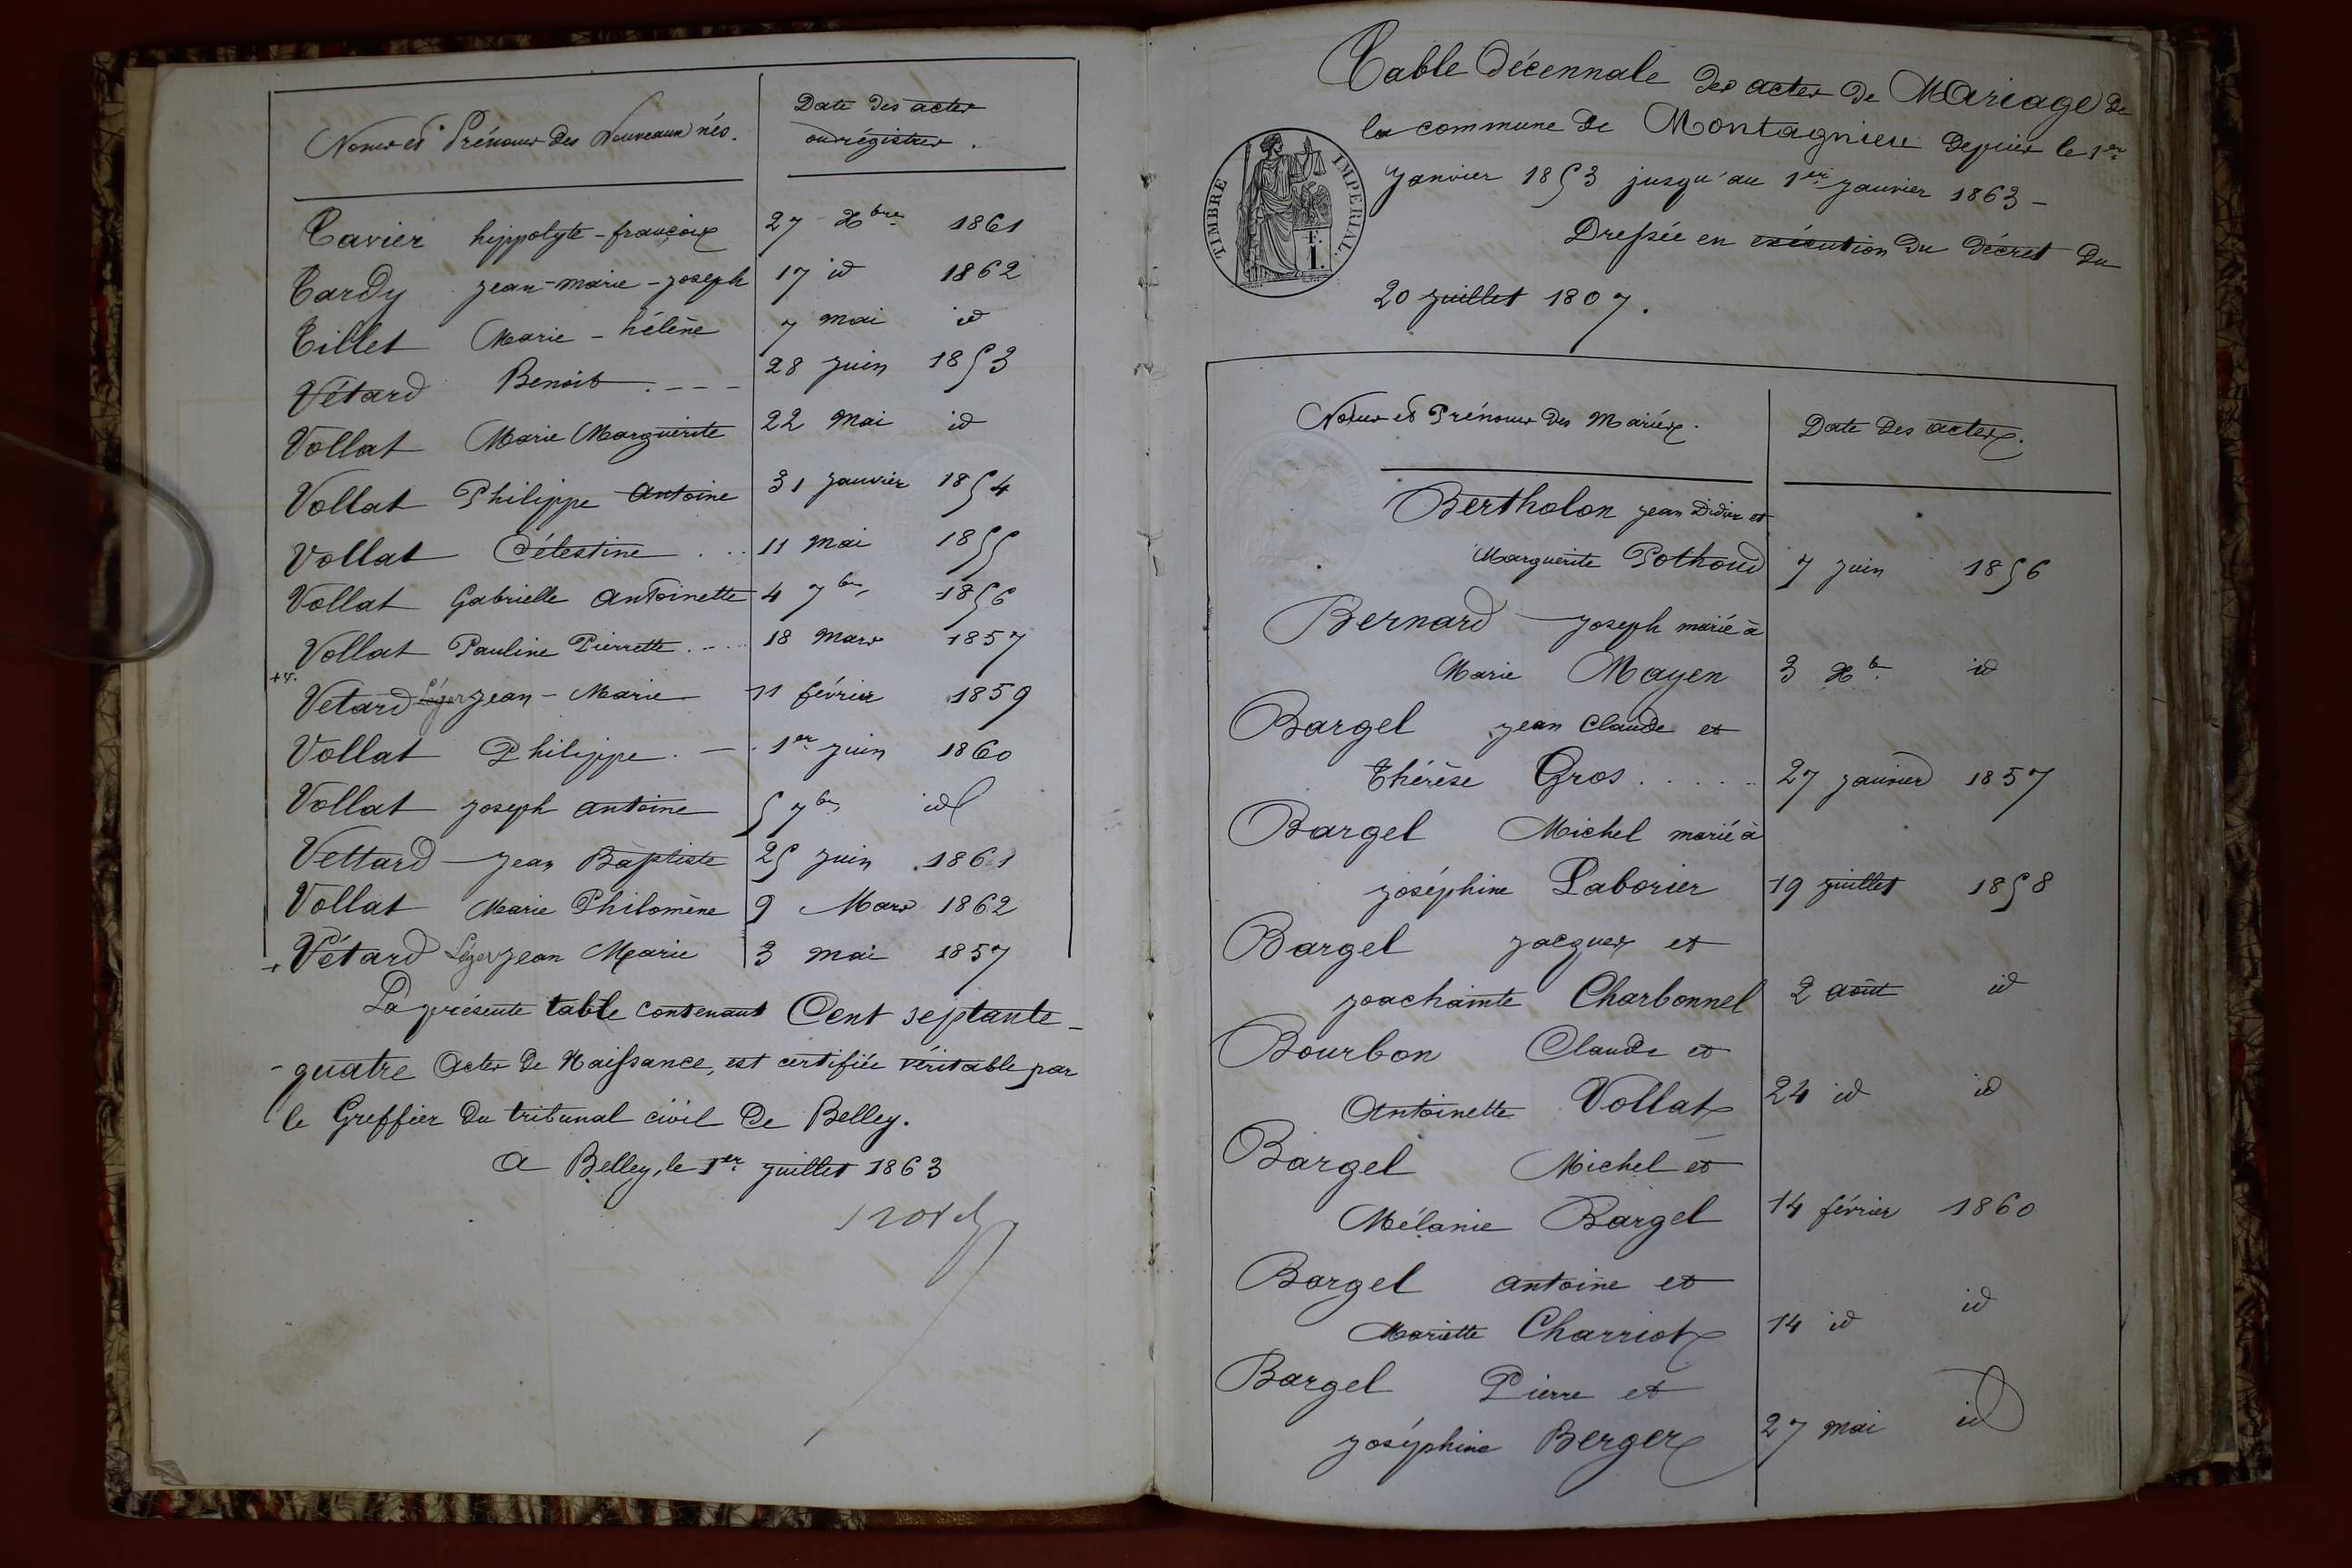 Noms et Prénoms des Nouveaux nés.
Date des actes
ou régistres.
Tavier hippolyte-françois 27 Xbre 1861
Tardy jean-marie-joseph 17 id 1862
Tillet Marie-hélène 7 mai id
Vétard Benoit . - - - 28 juin 1853
Vollat Marie Marguerite 22 Mai id
Vollat Philippe antoine 31 janvier 1854
Vollat Célestine . . . 11 Mai 1855
Vollat Gabrielle antoinette 4 7bre 1856
Vollat Pauline Pierrette . . . . 18 Mars 1857
+v.
Vetard Léger jean-Marie 11 février 1859
Vollat Philippe . — . 1er juin 1860
Vollat joseph antoine 5 7bre id
Vettard jean Baptiste 25 juin 1861
Vollat Marie Philomène 9 Mars 1862
+ Vétard Léger jean Marie 3 mai 1857
La présente table contenant Cent septante-
-quatre actes de Naissance, est certifiée véritable par
le Greffier du tribunal civil de Belley.
a Belley, le 1er juillet 1863
Table décennale des actes de Mariage de
la commune de Montagnieu depuis le 1er
janvier 1853 jusqu'au 1er janvier 1863 -
Dressée en exécution du décret du
20 juillet 1807.
TIMBRE IMPERIAL.
E.
1.
Noms et Prénoms des Mariés.
Date des actes.
Bertholon jean Didier et
Marguerite Pothoud 7 juin 1856
Bernard joseph marié à
Marie Mayen 3 Xbre id
Bargel jean Claude et
Thérèse Gros . . . . . 27 janvier 1857
Bargel Michel marié à
joséphine Laborier 19 juillet 1858
Bargel jacques et
joachainte Charbonnel 2 août id
Bourbon Claude et
Antoinette Vollat 24 id id
Bargel Michel et
Mélanie Bargel 14 février 1860
Bargel antoine et
Mariette Charriot 14 id id
Bargel Pierre et
joséphine Berger 27 mai id